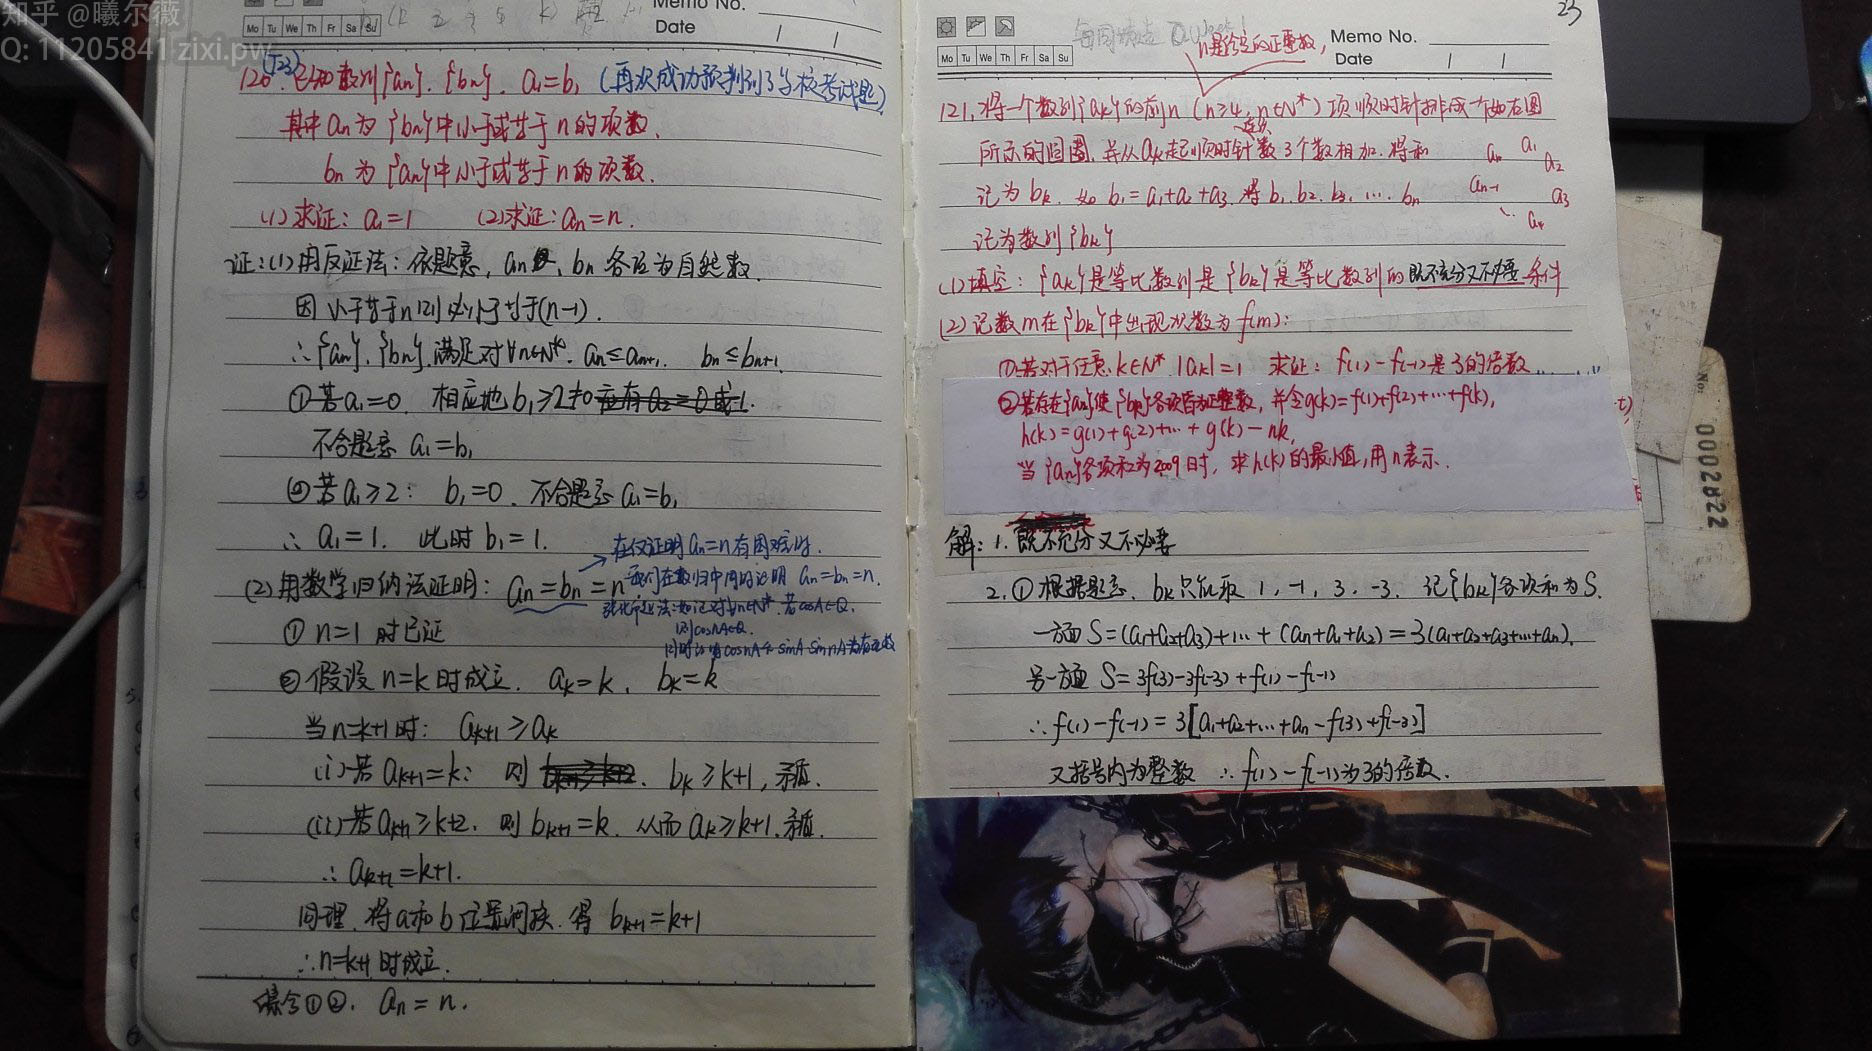 知乎 @曦尔薇
Q: 11205841 zixi.pw
Memo No.
Mo Tu We Th Fr Sa Su
Date / /
120. 已知数列{an}. {bn}. a₁=b₁ (再次成功预判到了学校考试题)
(T23)
其中 an 为 {bn}中小于或等于 n 的项数.
bn 为 {an}中小于或等于 n 的项数.
(1) 求证: a₁=1 (2) 求证: an=n.
证:(1) 用反证法: 依题意, an, bn 各应为自然数.
∴{an}, {bn}满足对∀n∈N*. an≤an+1, bn≤bn+1.
① 若a₁=0. 相应地 b₁≥2≠0
不合题意 a₁=b₁
② 若a₁≥2: b₁=0. 不合题意 a₁=b₁
∴ a₁=1. 此时 b₁=1.
(2) 用数学归纳法证明: an=bn=n
在仅证明an=n有困难时.
我们在数归中同时证明 an=bn=n.
强化命题法: 如证对∀n∈N*, 若cosA∈Q.
则cosnA∈Q.
同时证明cosnA与sinA·sinnA为有理数
① n=1 时已证
② 假设 n=k 时成立. ak=k, bk=k
当n=k+1时: ak+1≥ak
(i) 若 ak+1=k: 则 bk≥k+1, 矛盾.
(ii) 若ak+1≥k+2. 则 bk+1=k. 从而 ak≥k+1. 矛盾.
∴ ak+1=k+1.
同理, 将a和b位置调换. 得 bk+1=k+1
∴n=k+1 时成立.
综合①②. an=n.
23
Mo Tu We Th Fr Sa Su
Memo No.
Date / /
n是给定的正整数,
121. 将一个数列{ak}的前n (n≥4, n∈N*) 项顺时针排成一个如右图
所示的圆圈, 并从ak起顺时针连续数3个数相加. 将和
记为 bk. 如 b₁=a₁+a₂+a₃. 将 b₁. b₂. b₃. … bn
记为数列{bk}
an a₁ a₂
an-1 a₃
a₄
(1) 填空: {ak}是等比数列是{bk}是等比数列的既不充分又不必要条件
(2) 记数m在{bk}中出现次数为 f(m):
① 若对于任意k∈N*, |ak|=1 求证: f(1)-f(-1)是3的倍数
② 若存在{an}使{bn}各项皆为正整数, 并令g(k)=f(1)+f(2)+…+f(k),
h(k)=g(1)+g(2)+…+g(k)-nk,
当{an}各项和为2009时, 求h(k)的最小值, 用n表示.
0002822
No.
解: 1. 既不充分又不必要
2. ① 根据题意, bk 只能取 1, -1, 3, -3. 记{bk}各项和为 S.
一方面 S=(a₁+a₂+a₃)+…+(an+a₁+a₂)=3(a₁+a₂+a₃+…+an).
另一方面 S=3f(3)-3f(-3)+f(1)-f(-1)
∴f(1)-f(-1)=3[a₁+a₂+…+an-f(3)+f(-3)]
又括号内为整数 ∴f(1)-f(-1)为3的倍数.